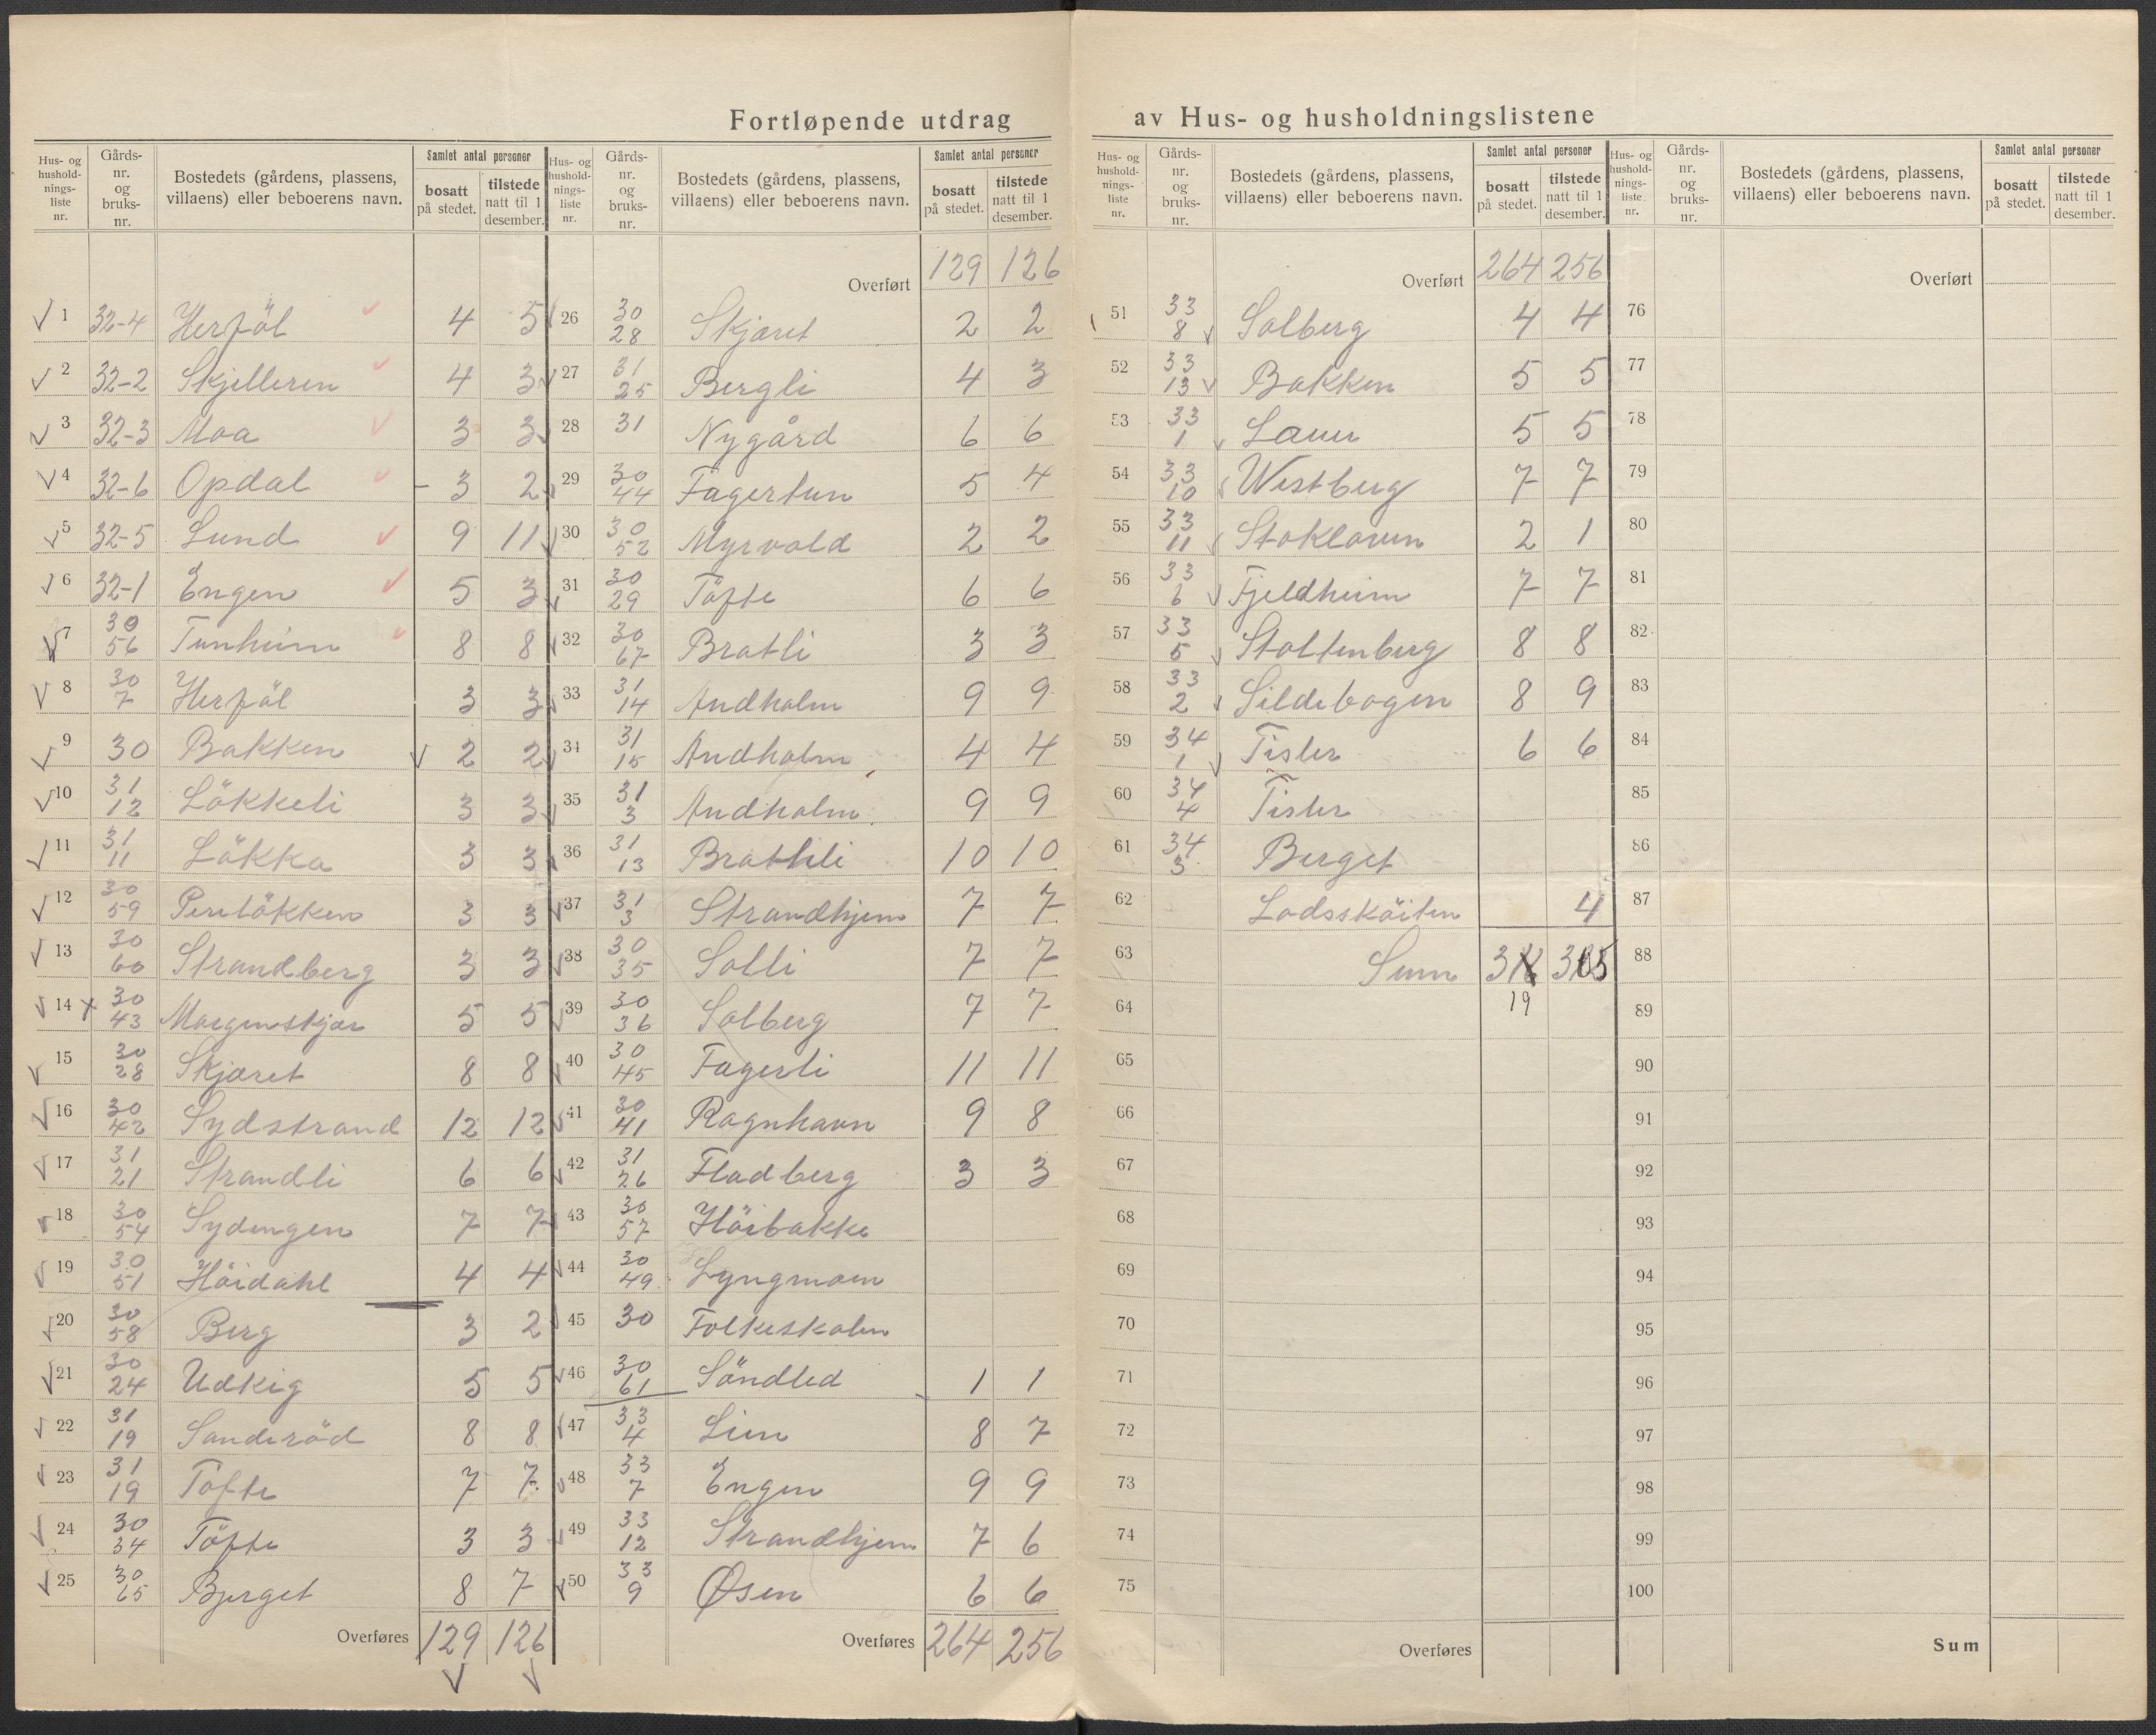 Fortløpende utdrag av Hus- og husholdningslistene
Hus- og hushold-nings-liste nr. Gårds-nr. og bruks-nr. Bostedets (gårdens, plassens, villaens) eller beboerens navn. Samlet antal personer bosatt på stedet. tilstede natt til 1 desember.
1 32-4 Herföl 4 5
2 32-2 Skjelleren 4 3
3 32-3 Moa 3 3
4 32-6 Opdal - 3 2
5 32-5 Lund 9 11
6 32-1 Engen 5 3
7 30 56 Tunheim 8 8
8 30 7 Herföl 3 3
9 30 Bakken 2 2
10 31 12 Lökkeli 3 3
11 31 11 Lökka 3 3
12 30 59 Perelökken 3 3
13 30 60 Strandberg 3 3
14 x 30 43 Morgenskjær 5 5
15 30 28 Skjæret 8 8
16 30 42 Sydstrand 12 12
17 31 21 Strandli 6 6
18 30 54 Sydengen 7 7
19 30 51 Höidahl 4 4
20 30 58 Berg 3 2
21 30 24 Udkig 5 5
22 31 19 Sanderöd 8 8
23 31 19 Töfte 7 7
24 30 34 Töfte 3 3
25 30 65 Bjerget 8 7
Overføres 129 126
Hus- og hushold-nings-liste nr. Gårds-nr. og bruks-nr. Bostedets (gårdens, plassens, villaens) eller beboerens navn. Samlet antal personer bosatt på stedet. tilstede natt til 1 desember.
Overført 129 126
26 30 28 Skjæret 2 2
27 31 25 Bergli 4 3
28 31 Nygård 6 6
29 30 44 Fagertun 5 4
30 30 52 Myrvold 2 2
31 30 29 Töfte 6 6
32 30 67 Bratli 3 3
33 31 14 Andholm 9 9
34 31 15 Andholm 4 4
35 31 3 Andholm 9 9
36 31 13 Brattli 10 10
37 31 3 Strandhjem 7 7
38 30 35 Solli 7 7
39 30 36 Solberg 7 7
40 30 45 Fagerli 11 11
41 30 41 Ragnhavn 9 8
42 31 26 Fladberg 3 3
43 30 57 Höibakke
44 30 49 Lyngmoen
45 30 Folkeskolen
46 30 61 Söndled 1 1
47 33 4 Lien 8 7
48 33 7 Engen 9 9
49 33 12 Strandhjem 7 6
50 33 9 Øsen 6 6
Overføres 264 256
Hus- og hushold-nings-liste nr. Gårds-nr. og bruks-nr. Bostedets (gårdens, plassens, villaens) eller beboerens navn. Samlet antal personer bosatt på stedet. tilstede natt til 1 desember.
Overført 264 256
51 33 8 Solberg 4 4
52 33 13 Bakken 5 5
53 33 1 Lauer 5 5
54 33 10 Westberg 7 7
55 33 11 2 1
56 33 6 Fjeldheim 7 7
57 33 5 Stoltenberg 8 8
58 33 2 Sildebogen 8 9
59 34 1 Tisler 6 6
60 34 4 Tisler
61 34 3 Berget
62 Lodssköiten 4
63 Sum 31 315
64 19
65
66
67
68
69
70
71
72
73
74
75
Overføres
Hus- og hushold-nings-liste nr. Gårds-nr. og bruks-nr. Bostedets (gårdens, plassens, villaens) eller beboerens navn. Samlet antal personer bosatt på stedet. tilstede natt til 1 desember.
Overført
76
77
78
79
80
81
82
83
84
85
86
87
88
89
90
91
92
93
94
95
96
97
98
99
100
Sum